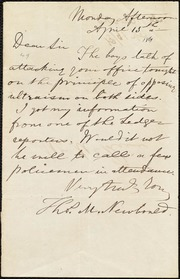 Monday Afternoon
April 15
Dear Sir
The boys talk of
attacking your office tonight
on the principle of opposing
ultraism on both sides.
I got my information
from one of the Ledger
reporters. Would it not
be well to call a few
policemen in attendance
Very truly Yours
Thos. M. Newbould